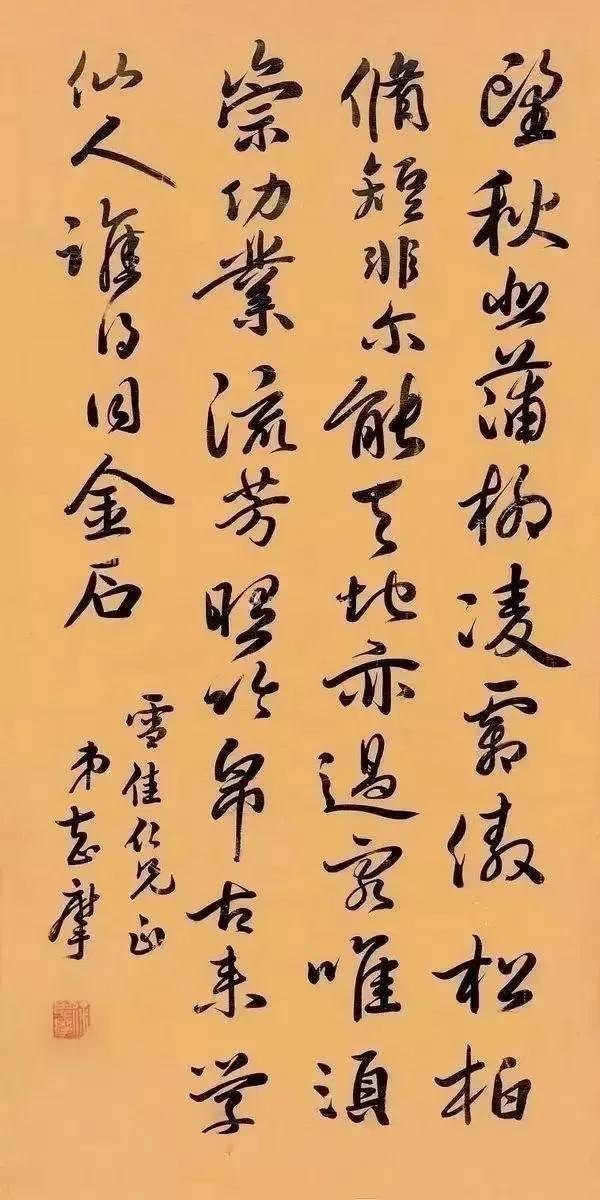 望秋悲蒲柳凌霜傲松柏
脩短非尔能天地亦過客唯須
崇功業流芳照竹帛古来学
仙人誰得同金石
雪佳仁兄正
弟志摩